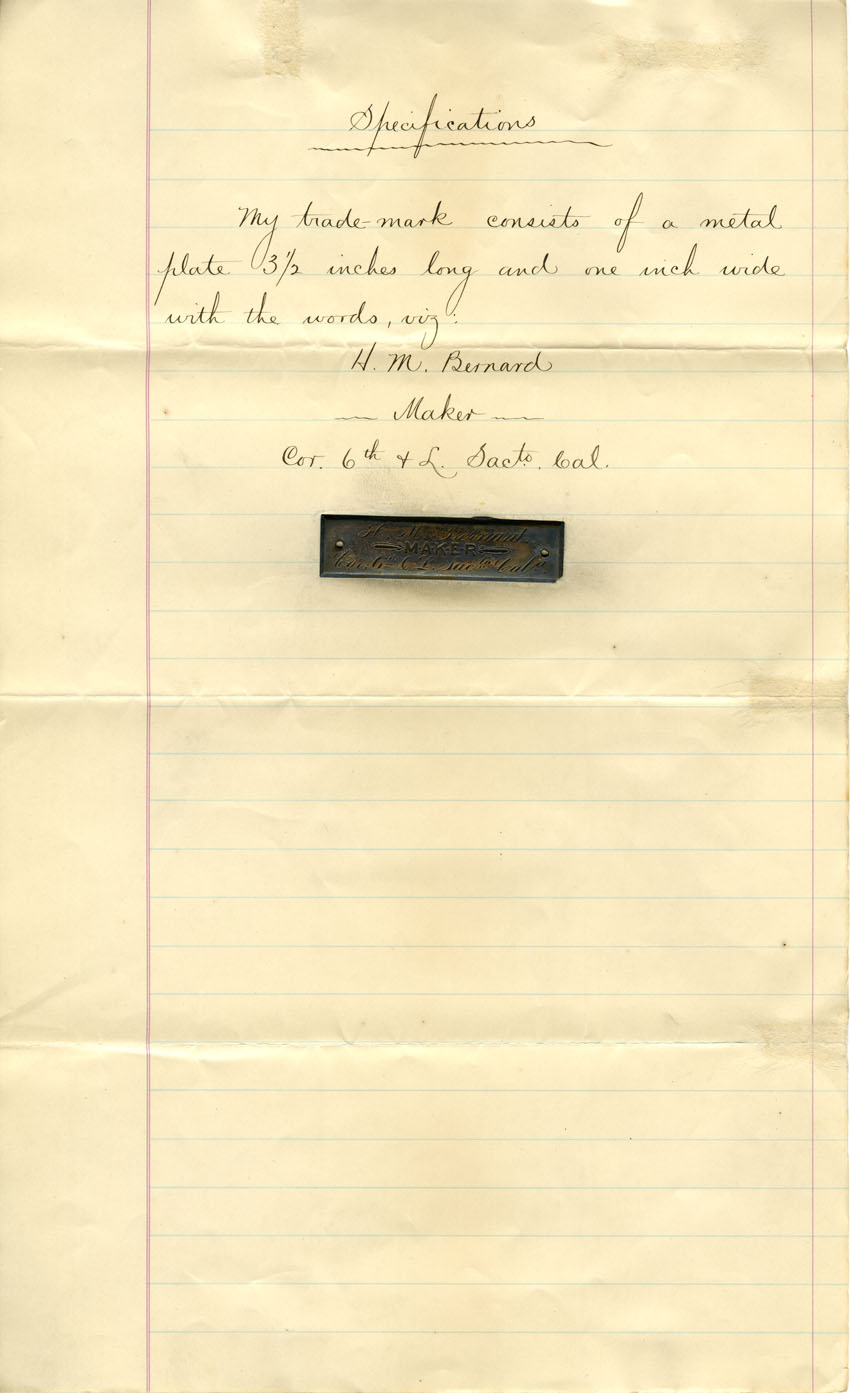 Specifications
My trade-mark consists of a metal
plate 3 1/2 inches long and one inch wide
with the words, viz:
H. M. Bernard
Maker
Cor. 6th & L. Sacto. Cal.
H. M. Bernard
MAKER
Cor. 6th & L. Sacto. Cal.